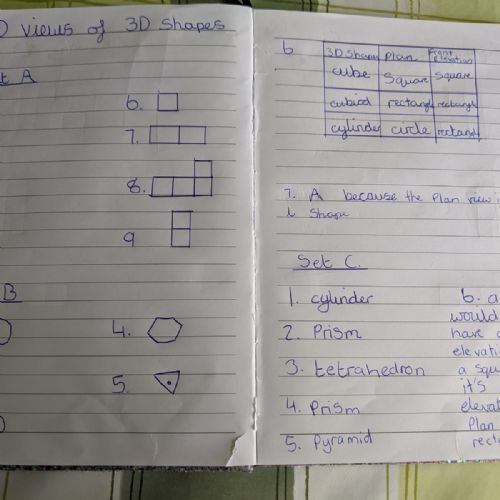 D views of 3D Shapes
t A
6.
7.
8.
9
B
4.
5.
6
3D Shapes Plan Front elevation
cube Square Square
cubiod rectangle rectangle
cylinder circle rectangle
7. A because the Plan view
L Shape
Set C.
1. cylinder
2. Prism
3. tetrahedron
4. Prism
5. Pyramid
6. a
would
have
elevati
a squ
it's
elevat
Plan
recta